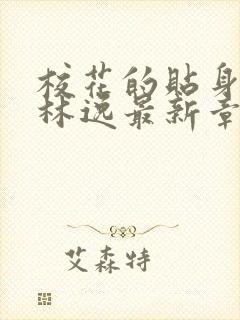 校花的贴身
林逸最新章
艾森特